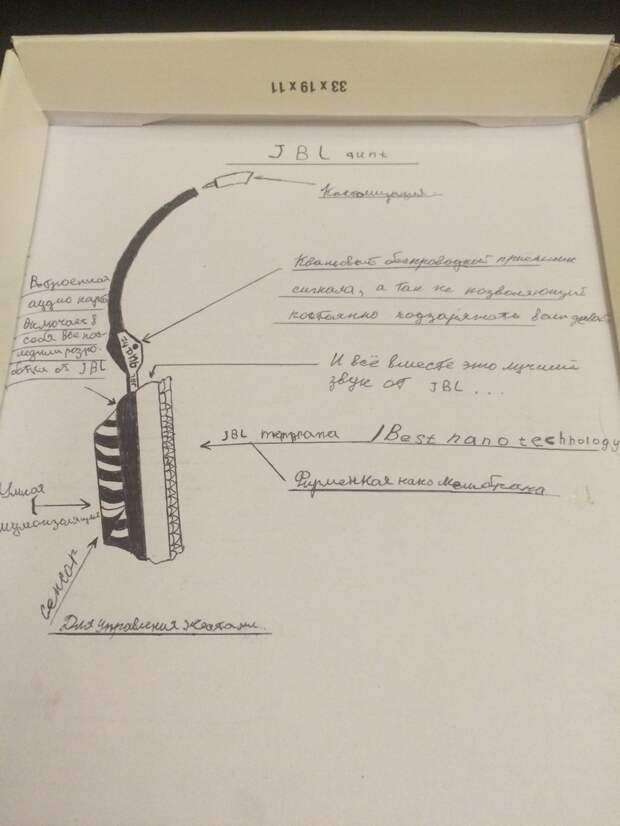 33 x 19 x 11
JBL
Костомизация
Встроенная
аудио карта
Включает в
себя все пос-
ледния розро-
ботки от JBL
Квантовый беспроводной приемник
сигнала, а так же позволяющий
постоянно подзаряжать
И всё вместе это лучший
звук от JBL...
JBL membrana / Best nano technology
Фирменная нано мембрана
Умная
шумоизоляция
сенсор
Для управления жестами.